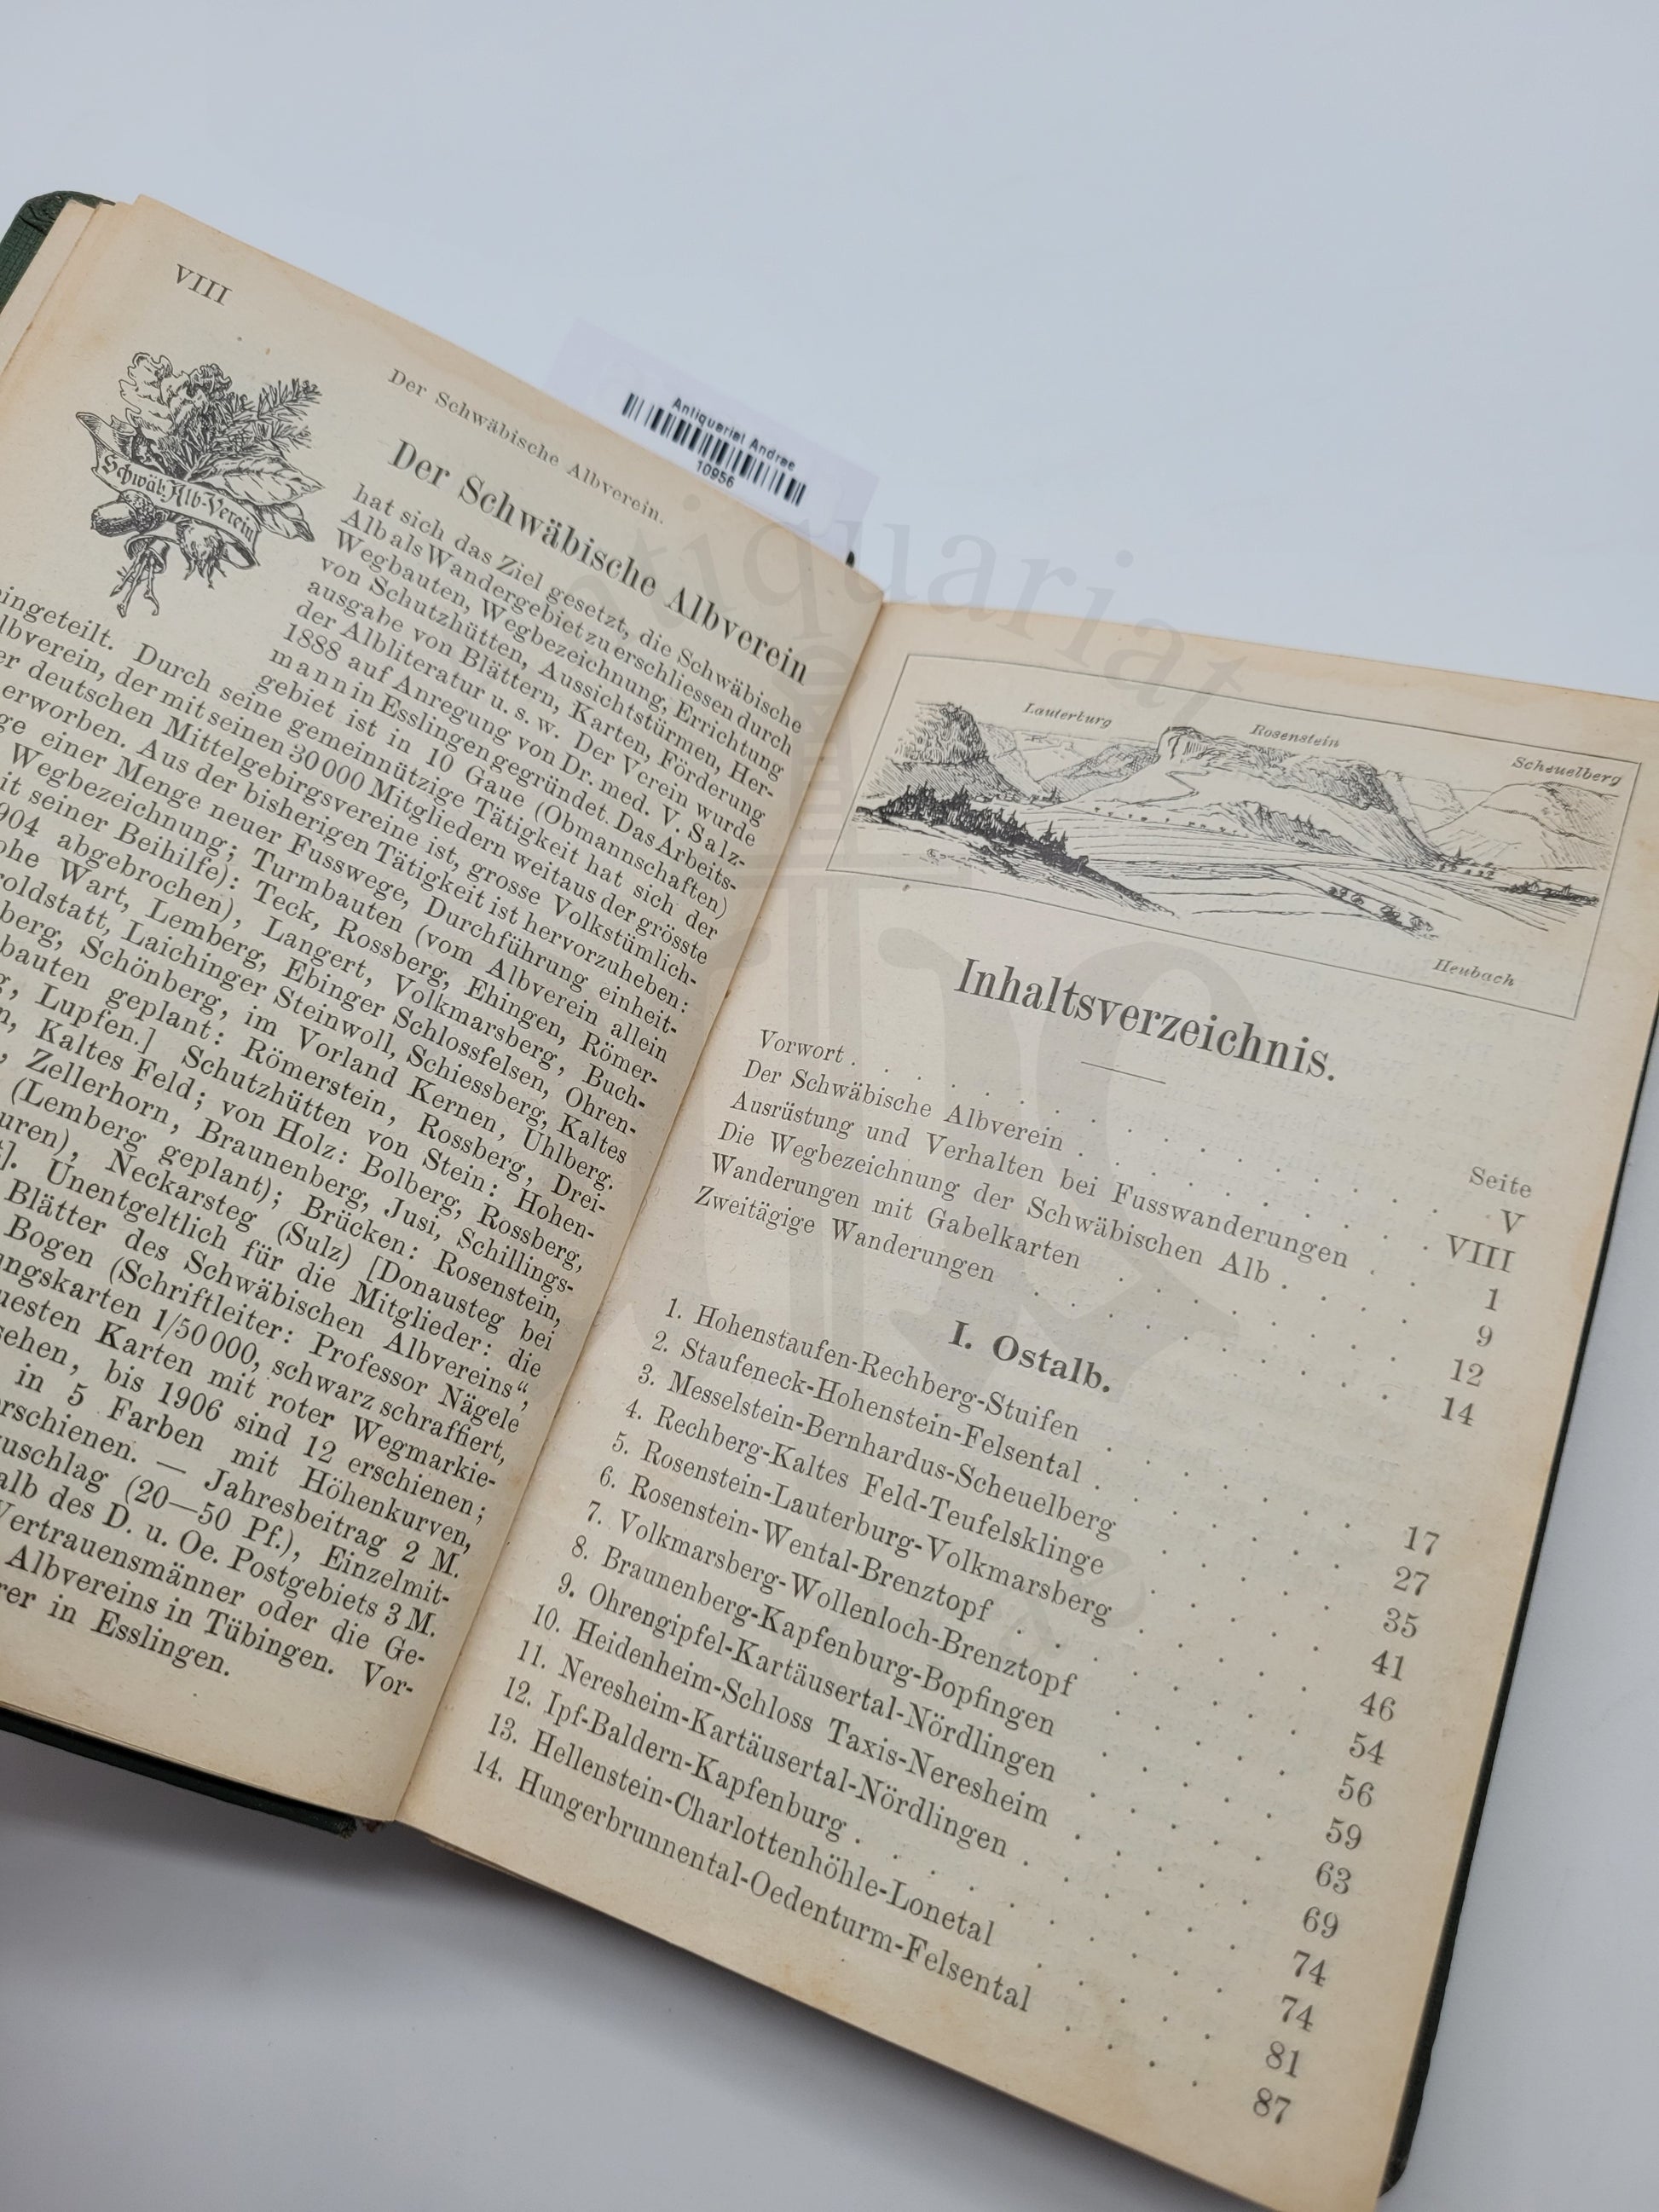 VIII
Der Schwäbische Albverein.
Schwäb. Alb-Verein
Der Schwäbische Albverein
hat sich das Ziel gesetzt, die Schwäbische
Alb als Wandergebiet zu erschliessen durch
Wegbauten, Wegbezeichnung, Errichtung
von Schutzhütten, Aussichtstürmen, Her-
ausgabe von Blättern, Karten, Förderung
der Albliteratur u. s. w. Der Verein wurde
1888 auf Anregung von Dr. med. V. Salz-
mann in Esslingen gegründet. Das Arbeits-
gebiet ist in 10 Gaue (Obmannschaften)
eingeteilt. Durch seine gemeinnützige Tätigkeit hat sich der
Albverein, der mit seinen 30000 Mitgliedern weitaus der grösste
der deutschen Mittelgebirgsvereine ist, grosse Volkstümlich-
erworben. Aus der bisherigen Tätigkeit ist hervorzuheben:
einer Menge neuer Fusswege, Durchführung einheit-
Wegbezeichnung; Turmbauten (vom Albverein allein
seiner Beihilfe): Teck, Rossberg, Ehingen, Römer-
904 abgebrochen), Langert, Volkmarsberg, Buch-
Wart, Lemberg, Ebinger Schlossfelsen, Ohren-
roldstatt, Laichinger Steinwoll, Schiessberg, Kaltes
berg, Schönberg, im Vorland Kernen, Uhlberg.
bauten geplant: Römerstein, Rossberg, Drei-
Lupfen.] Schutzhütten von Stein: Hohen-
Kaltes Feld; von Holz: Bolberg, Rossberg,
Zellerhorn, Braunenberg, Jusi, Schillings-
(Lemberg geplant); Brücken: Rosenstein,
uren), Neckarsteg (Sulz) [Donausteg bei
Unentgeltlich für die Mitglieder: die
Blätter des Schwäbischen Albvereins“,
Bogen (Schriftleiter: Professor Nägele
ngskarten 1/50000, schwarz schraffiert,
uesten Karten mit roter Wegmarkie-
sehen, bis 1906 sind 12 erschienen;
in 5 Farben mit Höhenkurven,
erschienen. — Jahresbeitrag 2 M.
zuschlag (20—50 Pf.), Einzelmit-
alb des D. u. Oe. Postgebiets 3 M.
Vertrauensmänner oder die Ge-
Albvereins in Tübingen. Vor-
rer in Esslingen.
Antiquariat Andree
10956
Lauterburg
Rosenstein
Scheuelberg
Heubach
Inhaltsverzeichnis.
Seite
Vorwort . . . . . V
Der Schwäbische Albverein . . . . . VIII
Ausrüstung und Verhalten bei Fusswanderungen . . . 1
Die Wegbezeichnung der Schwäbischen Alb . . . . 9
Wanderungen mit Gabelkarten . . . . . 12
Zweitägige Wanderungen . . . . . 14
I. Ostalb.
1. Hohenstaufen-Rechberg-Stuifen . . . . . 17
2. Staufeneck-Hohenstein-Felsental . . . . . 27
3. Messelstein-Bernhardus-Scheuelberg . . . . . 35
4. Rechberg-Kaltes Feld-Teufelsklinge . . . . . 41
5. Rosenstein-Lauterburg-Volkmarsberg . . . . . 46
6. Rosenstein-Wental-Brenztopf . . . . . 54
7. Volkmarsberg-Wollenloch-Brenztopf . . . . . 56
8. Braunenberg-Kapfenburg-Bopfingen . . . . . 59
9. Ohrengipfel-Kartäusertal-Nördlingen . . . . . 63
10. Heidenheim-Schloss Taxis-Neresheim . . . . . 69
11. Neresheim-Kartäusertal-Nördlingen . . . . . 74
12. Ipf-Baldern-Kapfenburg . . . . . 74
13. Hellenstein-Charlottenhöhle-Lonetal . . . . . 81
14. Hungerbrunnental-Oedenturm-Felsental . . . . . 87